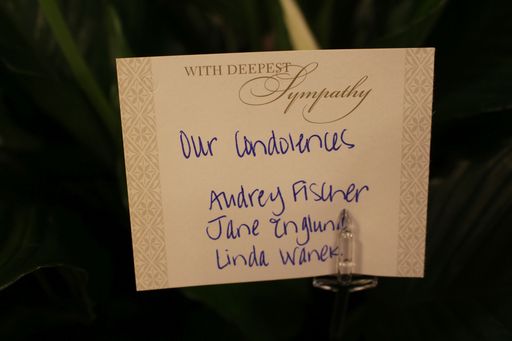 WITH DEEPEST
Sympathy
Our Condolences
Audrey Fischer
Jane Englund
Linda Wanek